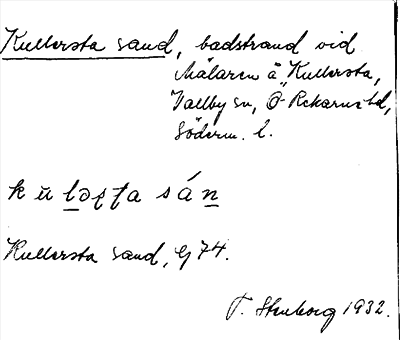 Kullersta sand, badstrand vid
Mälaren å Kullersta,
Vallby sn, Ö-Rekarne hd,
Söderm. l.
sán
Kullersta sand, Gj 74.
T. Stenborg 1932.